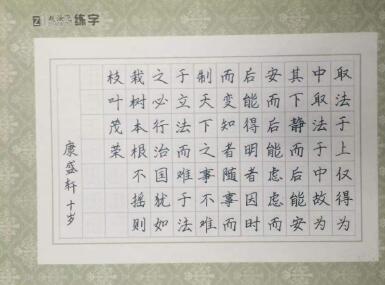 练字
取法于上仅得为
中取法于中故为
其下静而后能安
安而后能虑虑而
后能得明者因时
而变知者随事而
制天下之事不难
于立法而难于法
之必行治国犹如
栽树本根不摇则
枝叶茂荣
康盛轩十岁